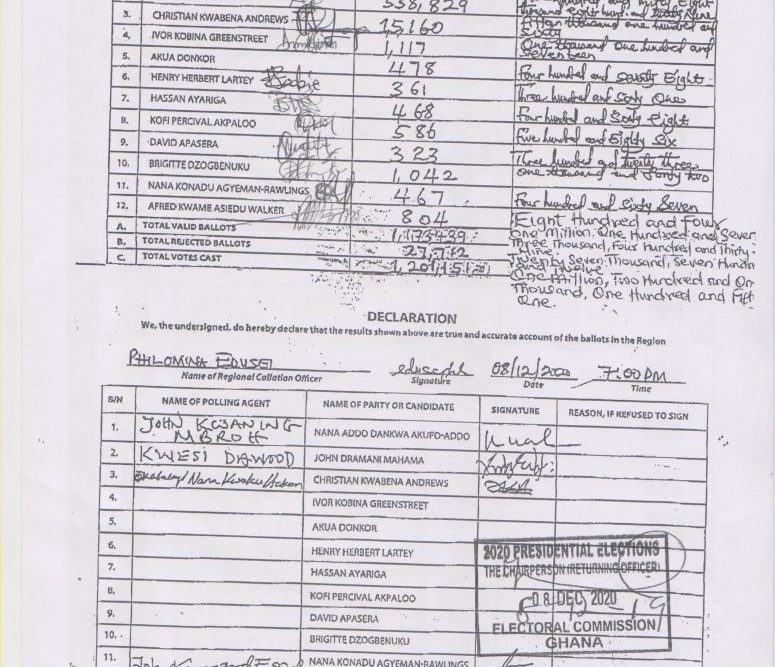 538,829
3. CHRISTIAN KWABENA ANDREWS 15,160 Fifteen thousand one hundred and Sixty
4. IVOR KOBINA GREENSTREET 1,117 One thousand one hundred and Seventeen
5. AKUA DONKOR 478 Four hundred and Seventy Eight
6. HENRY HERBERT LARTEY 361 Three hundred and Sixty One
7. HASSAN AYARIGA 468 Four hundred and Sixty Eight
8. KOFI PERCIVAL AKPALOO 586 Five hundred and Eighty Six
9. DAVID APASERA 323 Three hundred and twenty three
10. BRIGITTE DZOGBENUKU 1,042 One thousand and forty two
11. NANA KONADU AGYEMAN-RAWLINGS 467 Four hundred and Sixty Seven
12. AFRED KWAME ASIEDU WALKER 804 Eight Hundred and Four
A. TOTAL VALID BALLOTS 1,173,439 One Million, One Hundred and Seven Three Thousand, Four Hundred and Thirty-
B. TOTAL REJECTED BALLOTS 27,712 Twenty Seven Thousand, Seven Hundred and Twelve
C. TOTAL VOTES CAST 1,201,151 One Million, Two Hundred and On Thousand, One Hundred and Fift One.
DECLARATION
We, the undersigned, do hereby declare that the results shown above are true and accurate account of the ballots in the Region
PHILOMINA EDUSEI 08/12/2020 7:00PM
Name of Regional Collation Officer Signature Date Time
S/N NAME OF POLLING AGENT NAME OF PARTY OR CANDIDATE SIGNATURE REASON, IF REFUSED TO SIGN
1. JOHN NANA ADDO DANKWA AKUFO-ADDO
2. KWESI DAWOOD JOHN DRAMANI MAHAMA
3. Nana Kwaku CHRISTIAN KWABENA ANDREWS
4. IVOR KOBINA GREENSTREET
5. AKUA DONKOR
6. HENRY HERBERT LARTEY
7. HASSAN AYARIGA
8. KOFI PERCIVAL AKPALOO
9. DAVID APASERA
10. BRIGITTE DZOGBENUKU
11. NANA KONADU AGYEMAN-RAWLINGS
2020 PRESIDENTIAL ELECTIONS
THE CHAIRPERSON (RETURNING OFFICER)
08 DEC 2020
ELECTORAL COMMISSION
GHANA